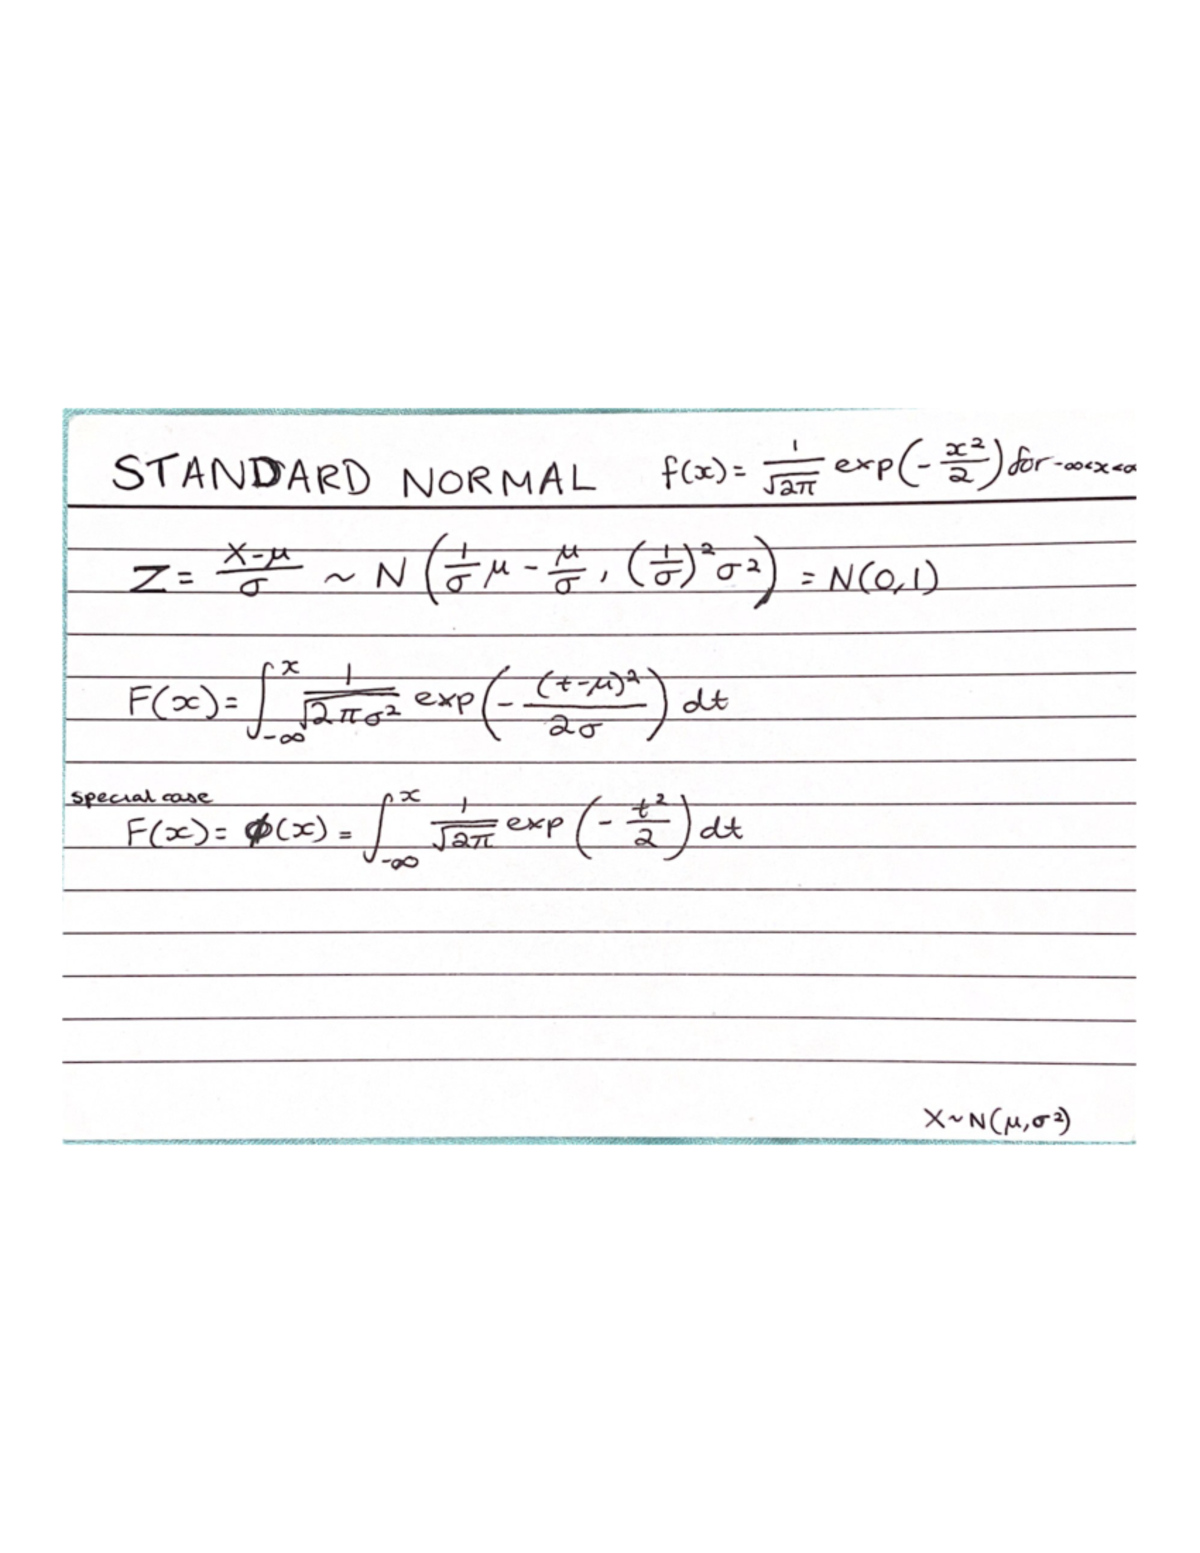 STANDARD NORMAL f(x) = 1/√2π exp(-x²/2) for -∞<x<∞
Z = X-μ/σ ~ N(1/σ μ - μ/σ, (1/σ)²σ²) = N(0,1)
F(x) = ∫_{-∞}^{x} 1/√2πσ² exp(-(t-μ)²/2σ) dt
special case
F(x) = ϕ(x) = ∫_{-∞}^{x} 1/√2π exp(-t²/2) dt
X~N(μ,σ²)